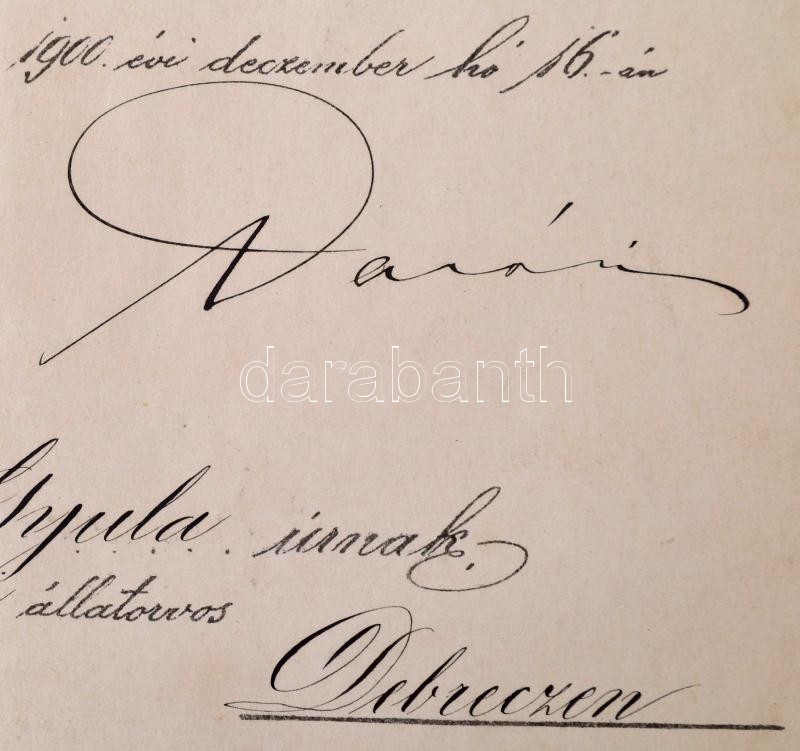 1900. évi deczember hó 16.-án
Darányi
darabanth
Gyula úrnak.
állatorvos
Debreczen